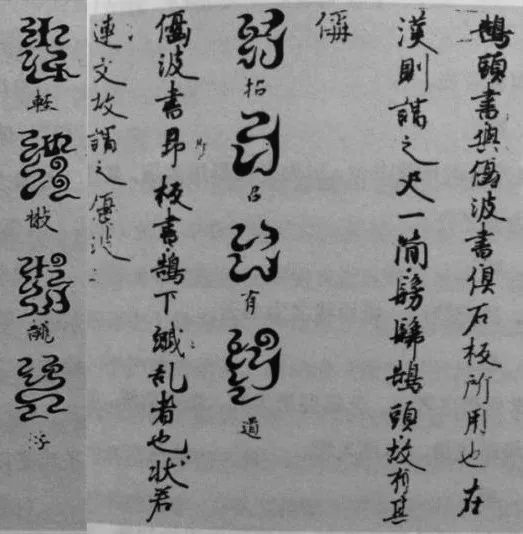 鵠頭書與偃波書俱石板所用也在
漢則謂之尺一簡髣髴鵠頭故有其
偁
招召有道
偃波書即板書鵠下纎乱者也状若
連文故謂之偃波
軽